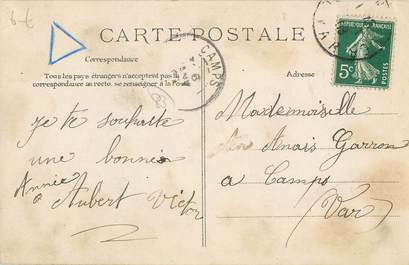 6 €
CARTE POSTALE
Correspondance
Tous les pays étrangers n'acceptent pas la
correspondance au recto, se renseigner à la Poste
Adresse
CAMPS
RÉPUBLIQUE FRANÇAISE
5c
POSTES
je te souhaite
une bonnée
Année
Aubert Victor
Mademoiselle
Anaïs Garron
a Camps
(Var)